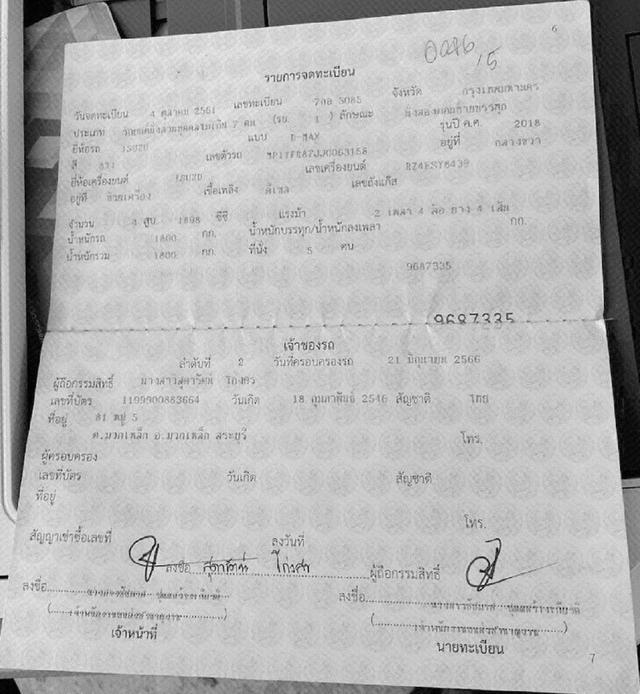 6
0086
15
รายการจดทะเบียน
วันจดทะเบียน 4 ตุลาคม 2561 เลขทะเบียน 7กอ 3085 จังหวัด กรุงเทพมหานคร
ประเภท รถยนต์นั่งส่วนบุคคลไม่เกิน 7 คน (รย. 1 ) ลักษณะ นั่งสองตอนท้ายบรรทุก
ยี่ห้อรถ ISUZU แบบ D-MAX รุ่นปี ค.ศ. 2018
สี เลขตัวรถ อยู่ที่ กลางขวา
ยี่ห้อเครื่องยนต์ ISUZU เลขเครื่องยนต์ RZ4ESY6439
อยู่ที่ เชื้อเพลิง ดีเซล เลขถังแก๊ส
จำนวน 4 สูบ 1898 ซีซี แรงม้า 2 เพลา 4 ล้อ ยาง 4 เส้น
น้ำหนักรถ 1800 กก. น้ำหนักบรรทุก/น้ำหนักลงเพลา กก.
น้ำหนักรวม 1800 กก. ที่นั่ง 5 คน
9687335
9687335
เจ้าของรถ
ลำดับที่ 2 วันที่ครอบครองรถ 21 มิถุนายน 2566
ผู้ถือกรรมสิทธิ์ นางสาวสุดารัตน์
เลขที่บัตร 1199900883664 วันเกิด 18 กุมภาพันธ์ 2546 สัญชาติ ไทย
ที่อยู่ 81 หมู่ 5
ต.มวกเหล็ก อ.มวกเหล็ก สระบุรี โทร.
ผู้ครอบครอง
เลขที่บัตร วันเกิด สัญชาติ
ที่อยู่
โทร.
สัญญาเช่าซื้อเลขที่ ลงวันที่
ลงชื่อ สุดารัตน์ ผู้ถือกรรมสิทธิ์
ลงชื่อ ลงชื่อ
เจ้าหน้าที่ นายทะเบียน
7